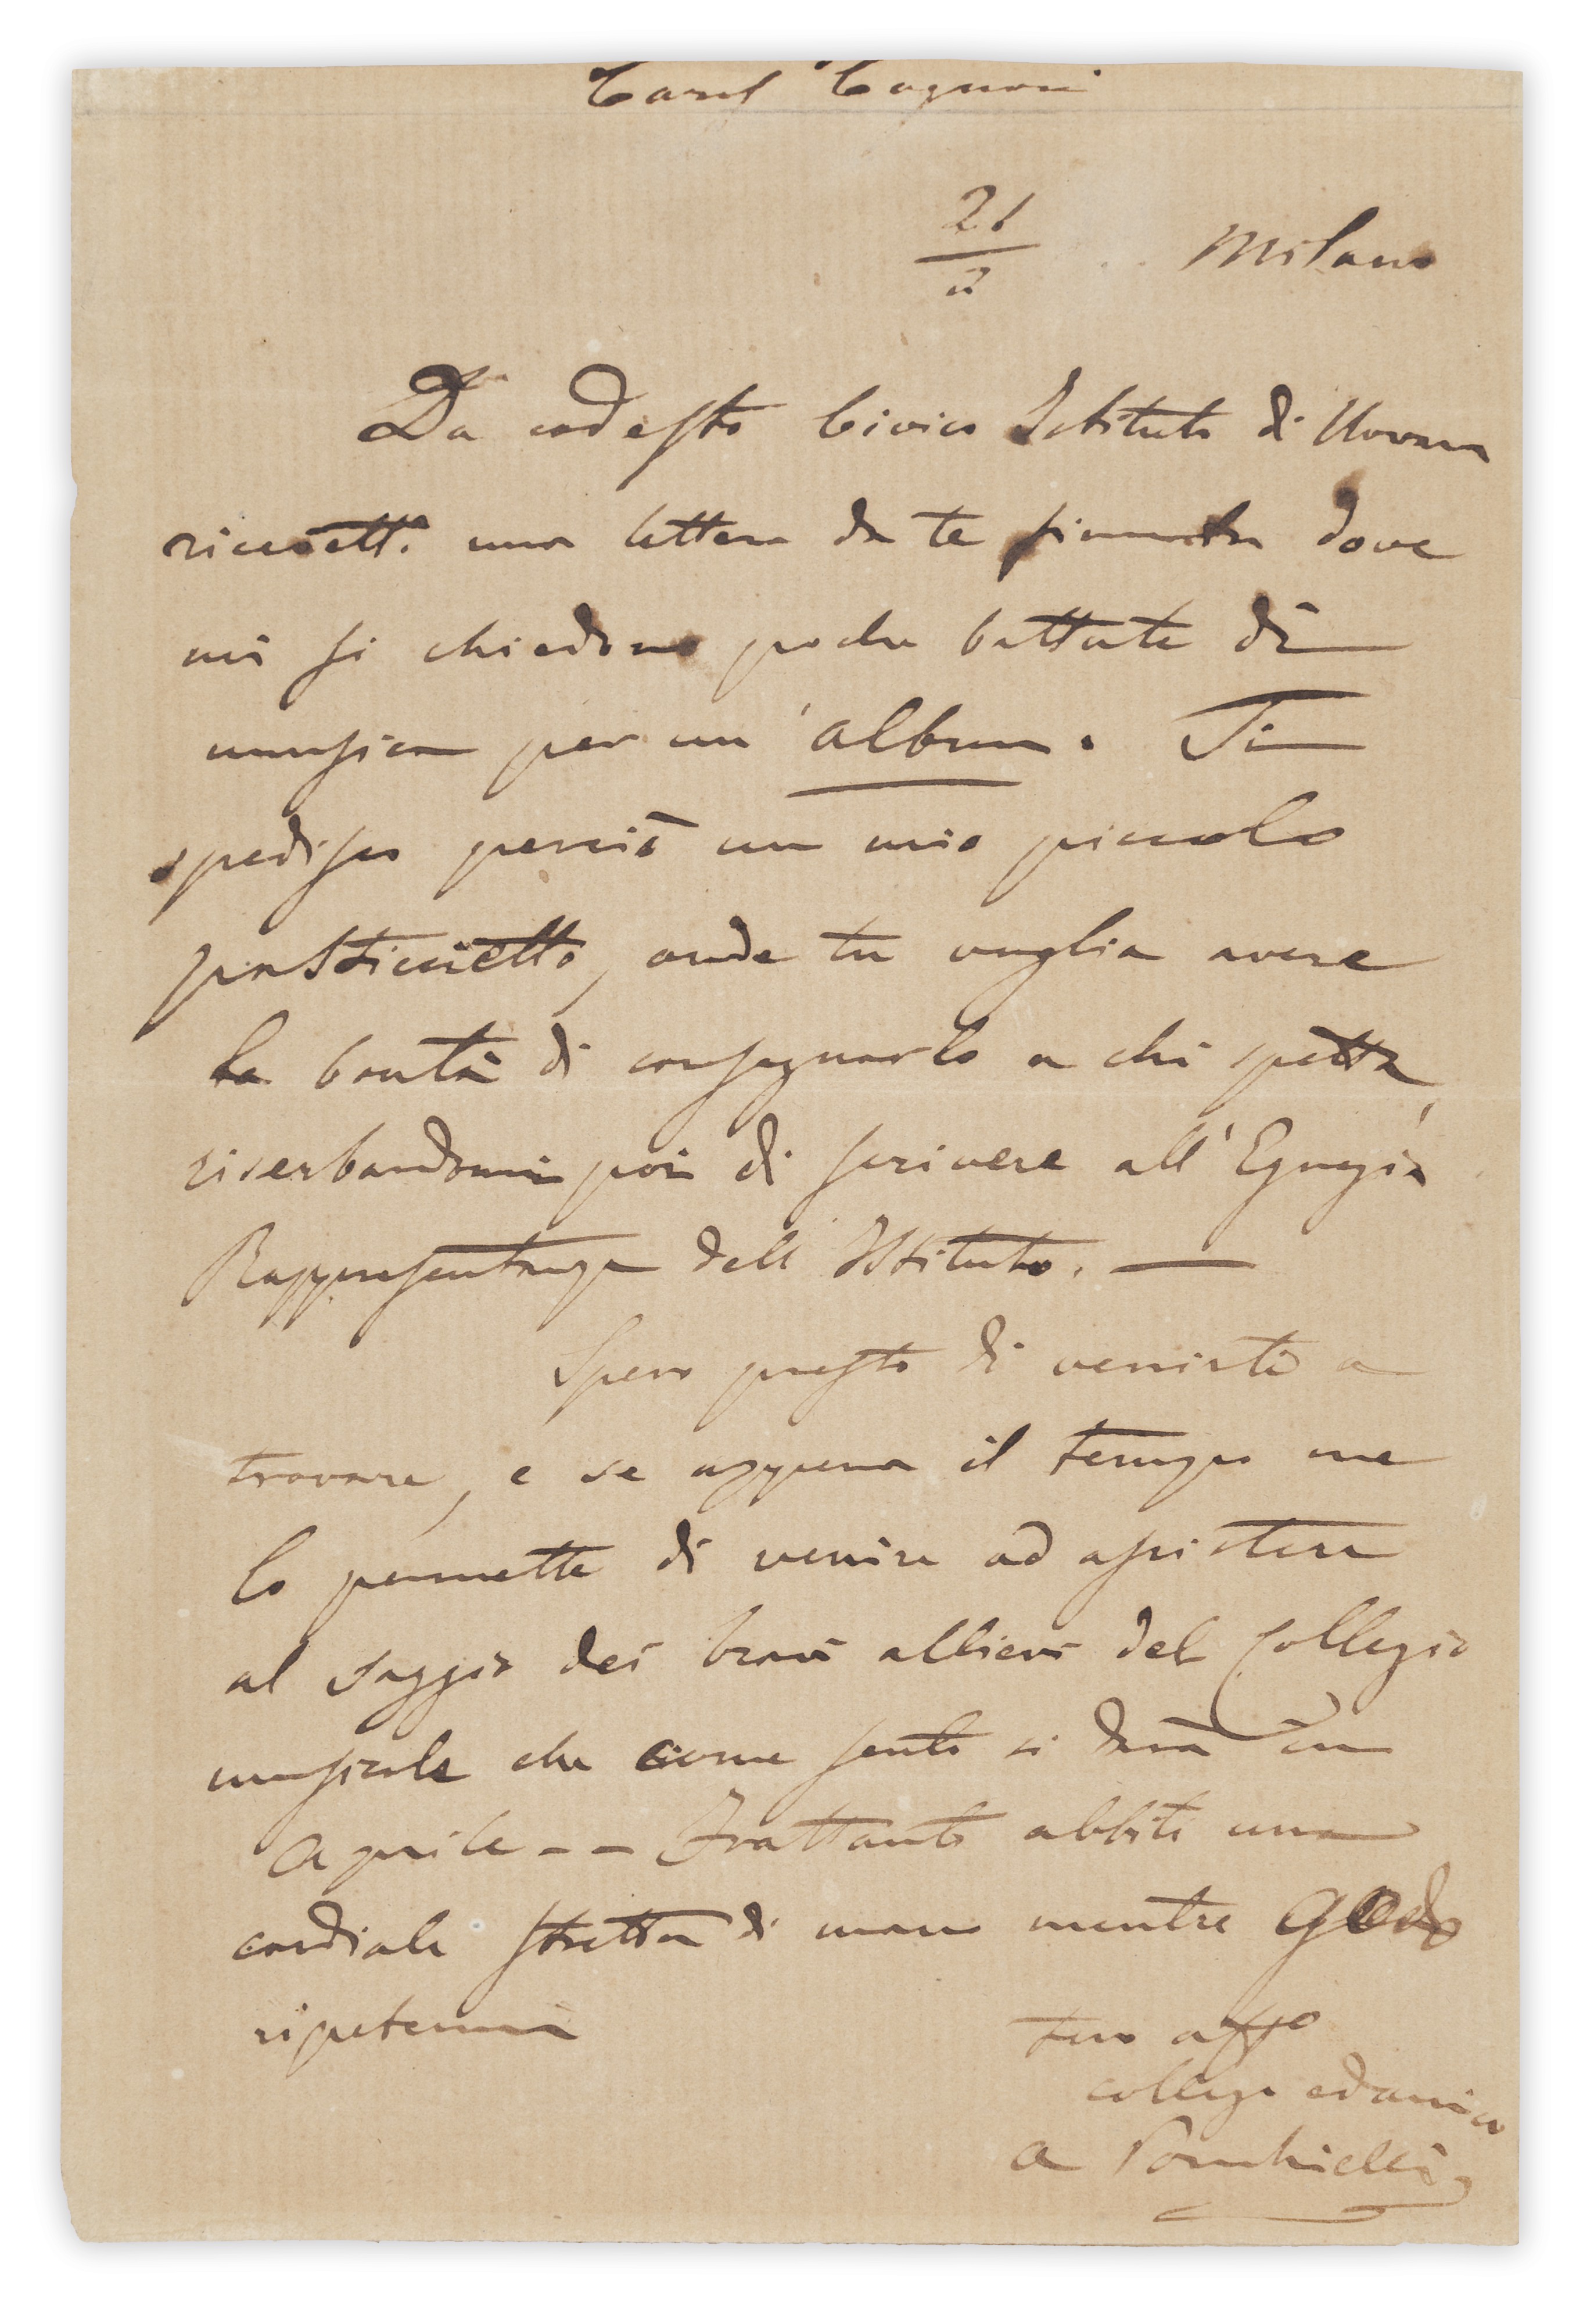 Caro Cagnoni
21/2 Milano
Da codesto Civico Istituto di Novara
ricevetti una lettera da te firmata dove
mi si chiedono poche battute di
musica per un' album. Ti
spedisco perciò un mio piccolo
pasticcietto, onde tu voglia avere
la bontà di consegnarlo a chi spetta
riserbandomi poi di scrivere all' Egregia
Rappresentanza dell Istituto. —
Spero presto di venirti a
trovare, e se appena il tempo me
lo permette di venire ad assistere
al saggio dei bravi allievi del Collegio
musicale che come sento si darà in
Aprile - - Frattanto abbiti una
cordiale stretta di mano mentre godo
ripetermi
tuo affo
collega ed amico
A Ponchielli